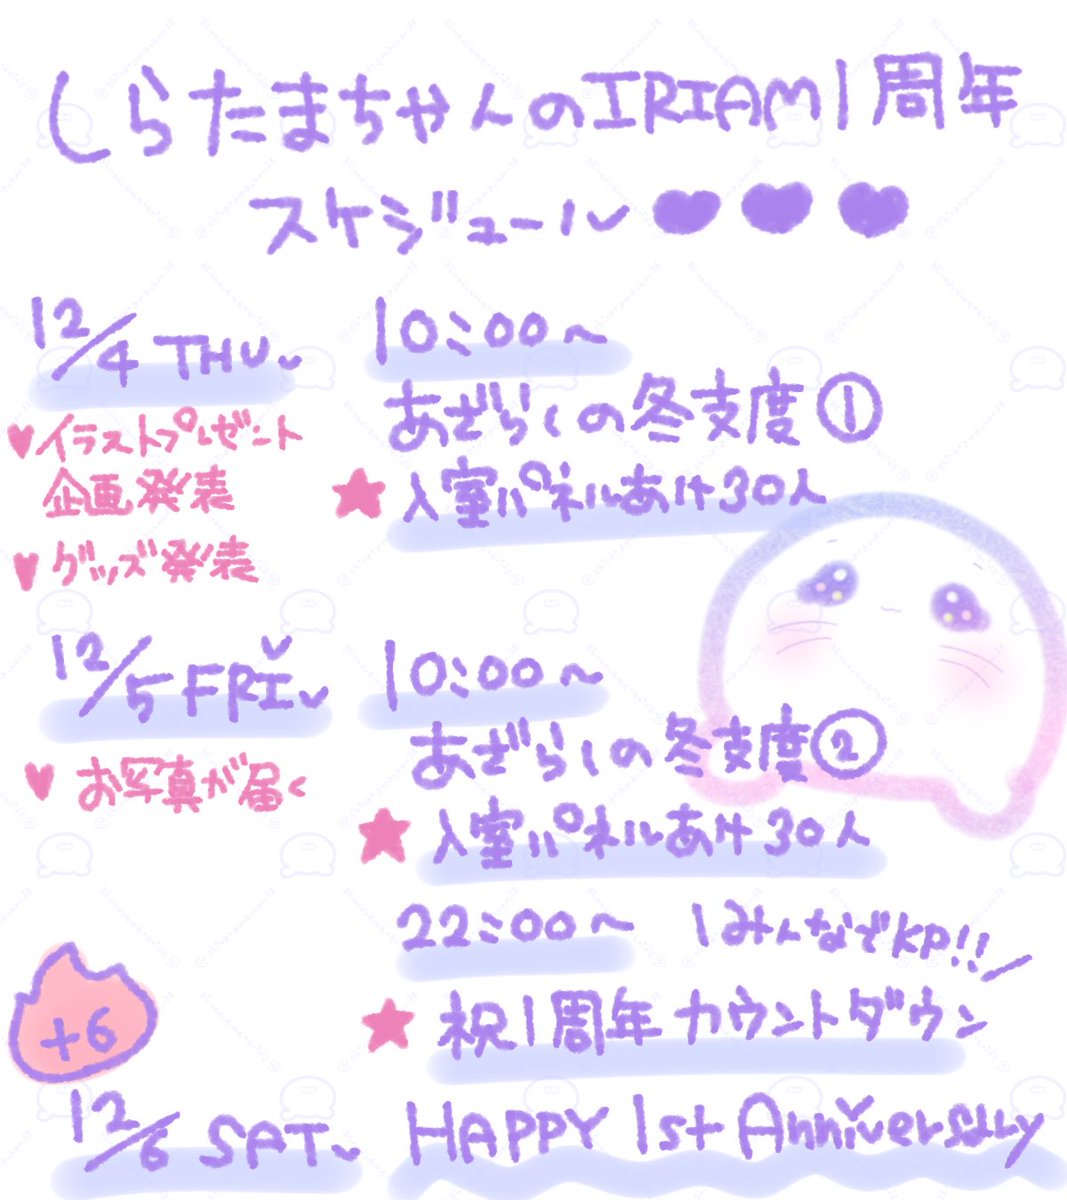 しらたまちゃんのIRIAM1周年
スケジュール
12/4 THU
イラストプレゼント
企画発表
グッズ発表
10:00〜
あざらしの冬支度①
入室パネルあけ30人
12/5 FRI
お写真が届く
10:00〜
あざらしの冬支度②
入室パネルあけ30人
22:00〜
\みんなでKP!!/
祝1周年カウントダウン
+6
12/6 SAT
HAPPY 1st Anniversary